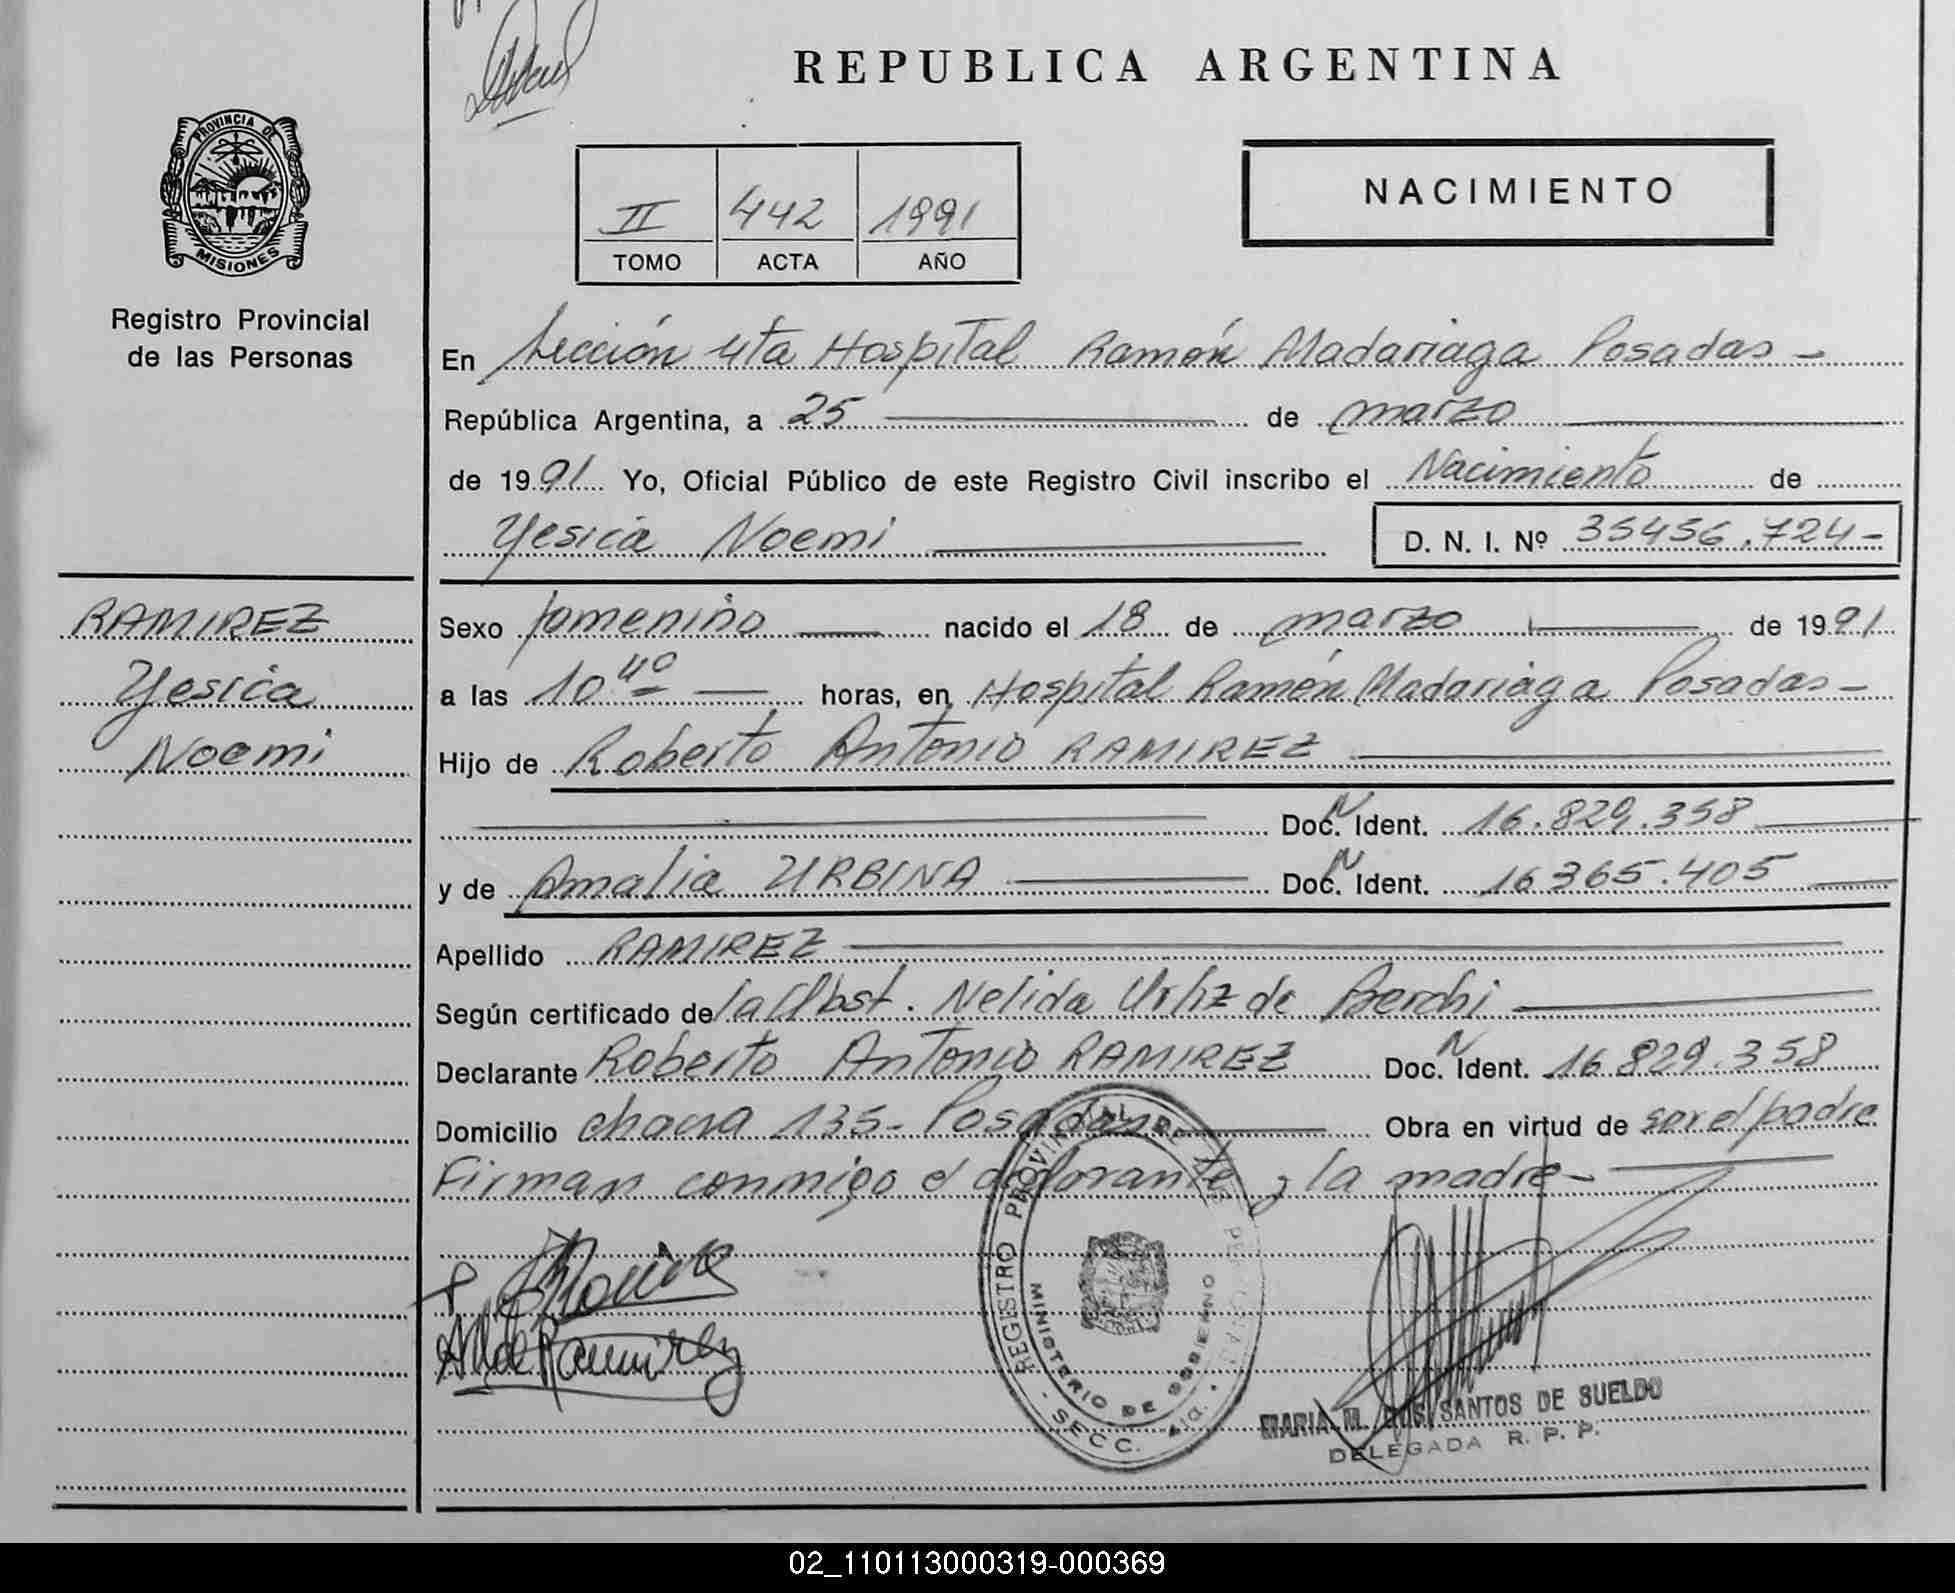 REPUBLICA ARGENTINA
PROVINCIA DE
MISIONES
Registro Provincial
de las Personas
II 442 1991
TOMO ACTA AÑO
NACIMIENTO
En Sección 4ta Hospital Ramón Madariaga Posadas -
República Argentina, a 25 de marzo
de 1991 Yo, Oficial Público de este Registro Civil inscribo el Nacimiento de
Yesica Noemi D. N. I. Nº 35456.724-
RAMIREZ
Yesica
Noemi
Sexo femenino nacido el 18 de marzo de 1991
a las 10 40 horas, en Hospital Ramón Madariaga Posadas-
Hijo de Roberto Antonio RAMIREZ
Doc. N Ident. 16.829.358
y de Amalia URBINA Doc. N Ident. 16365.405
Apellido RAMIREZ
Según certificado de la Obst. Nelida Ortiz de Berchi
Declarante Roberto Antonio RAMIREZ Doc. N Ident. 16829.358
Domicilio chacra 135- Posadas Obra en virtud de ser el padre
Firman conmigo el declarante y la madre-
REGISTRO PROVINCIAL DE LAS PERSONAS
MINISTERIO DE GOBIERNO
SECC. 4ta.
A U de Ramirez
MARIA M. DOS SANTOS DE SUELDO
DELEGADA R. P. P.
02_110113000319-000369